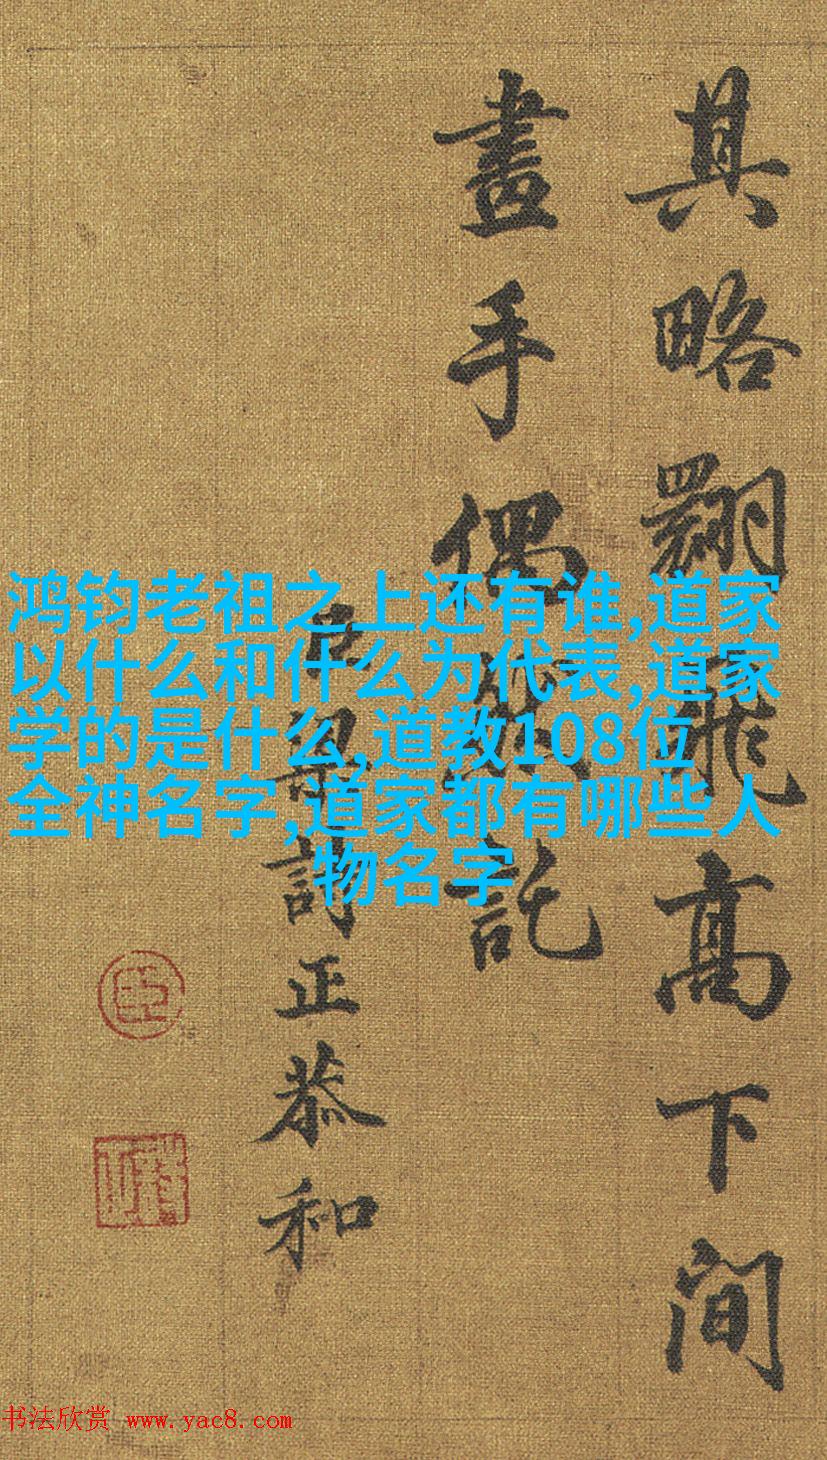 其略翾飛高下間
畫手偶然託
臣梁詩正恭和
臣
鸿钧老祖之上还有谁,道家
以什么和什么为代表,道家
学的是什么,道教108位
全神名字,道家都有哪些人
物名字
书法欣赏 www.yac8.com